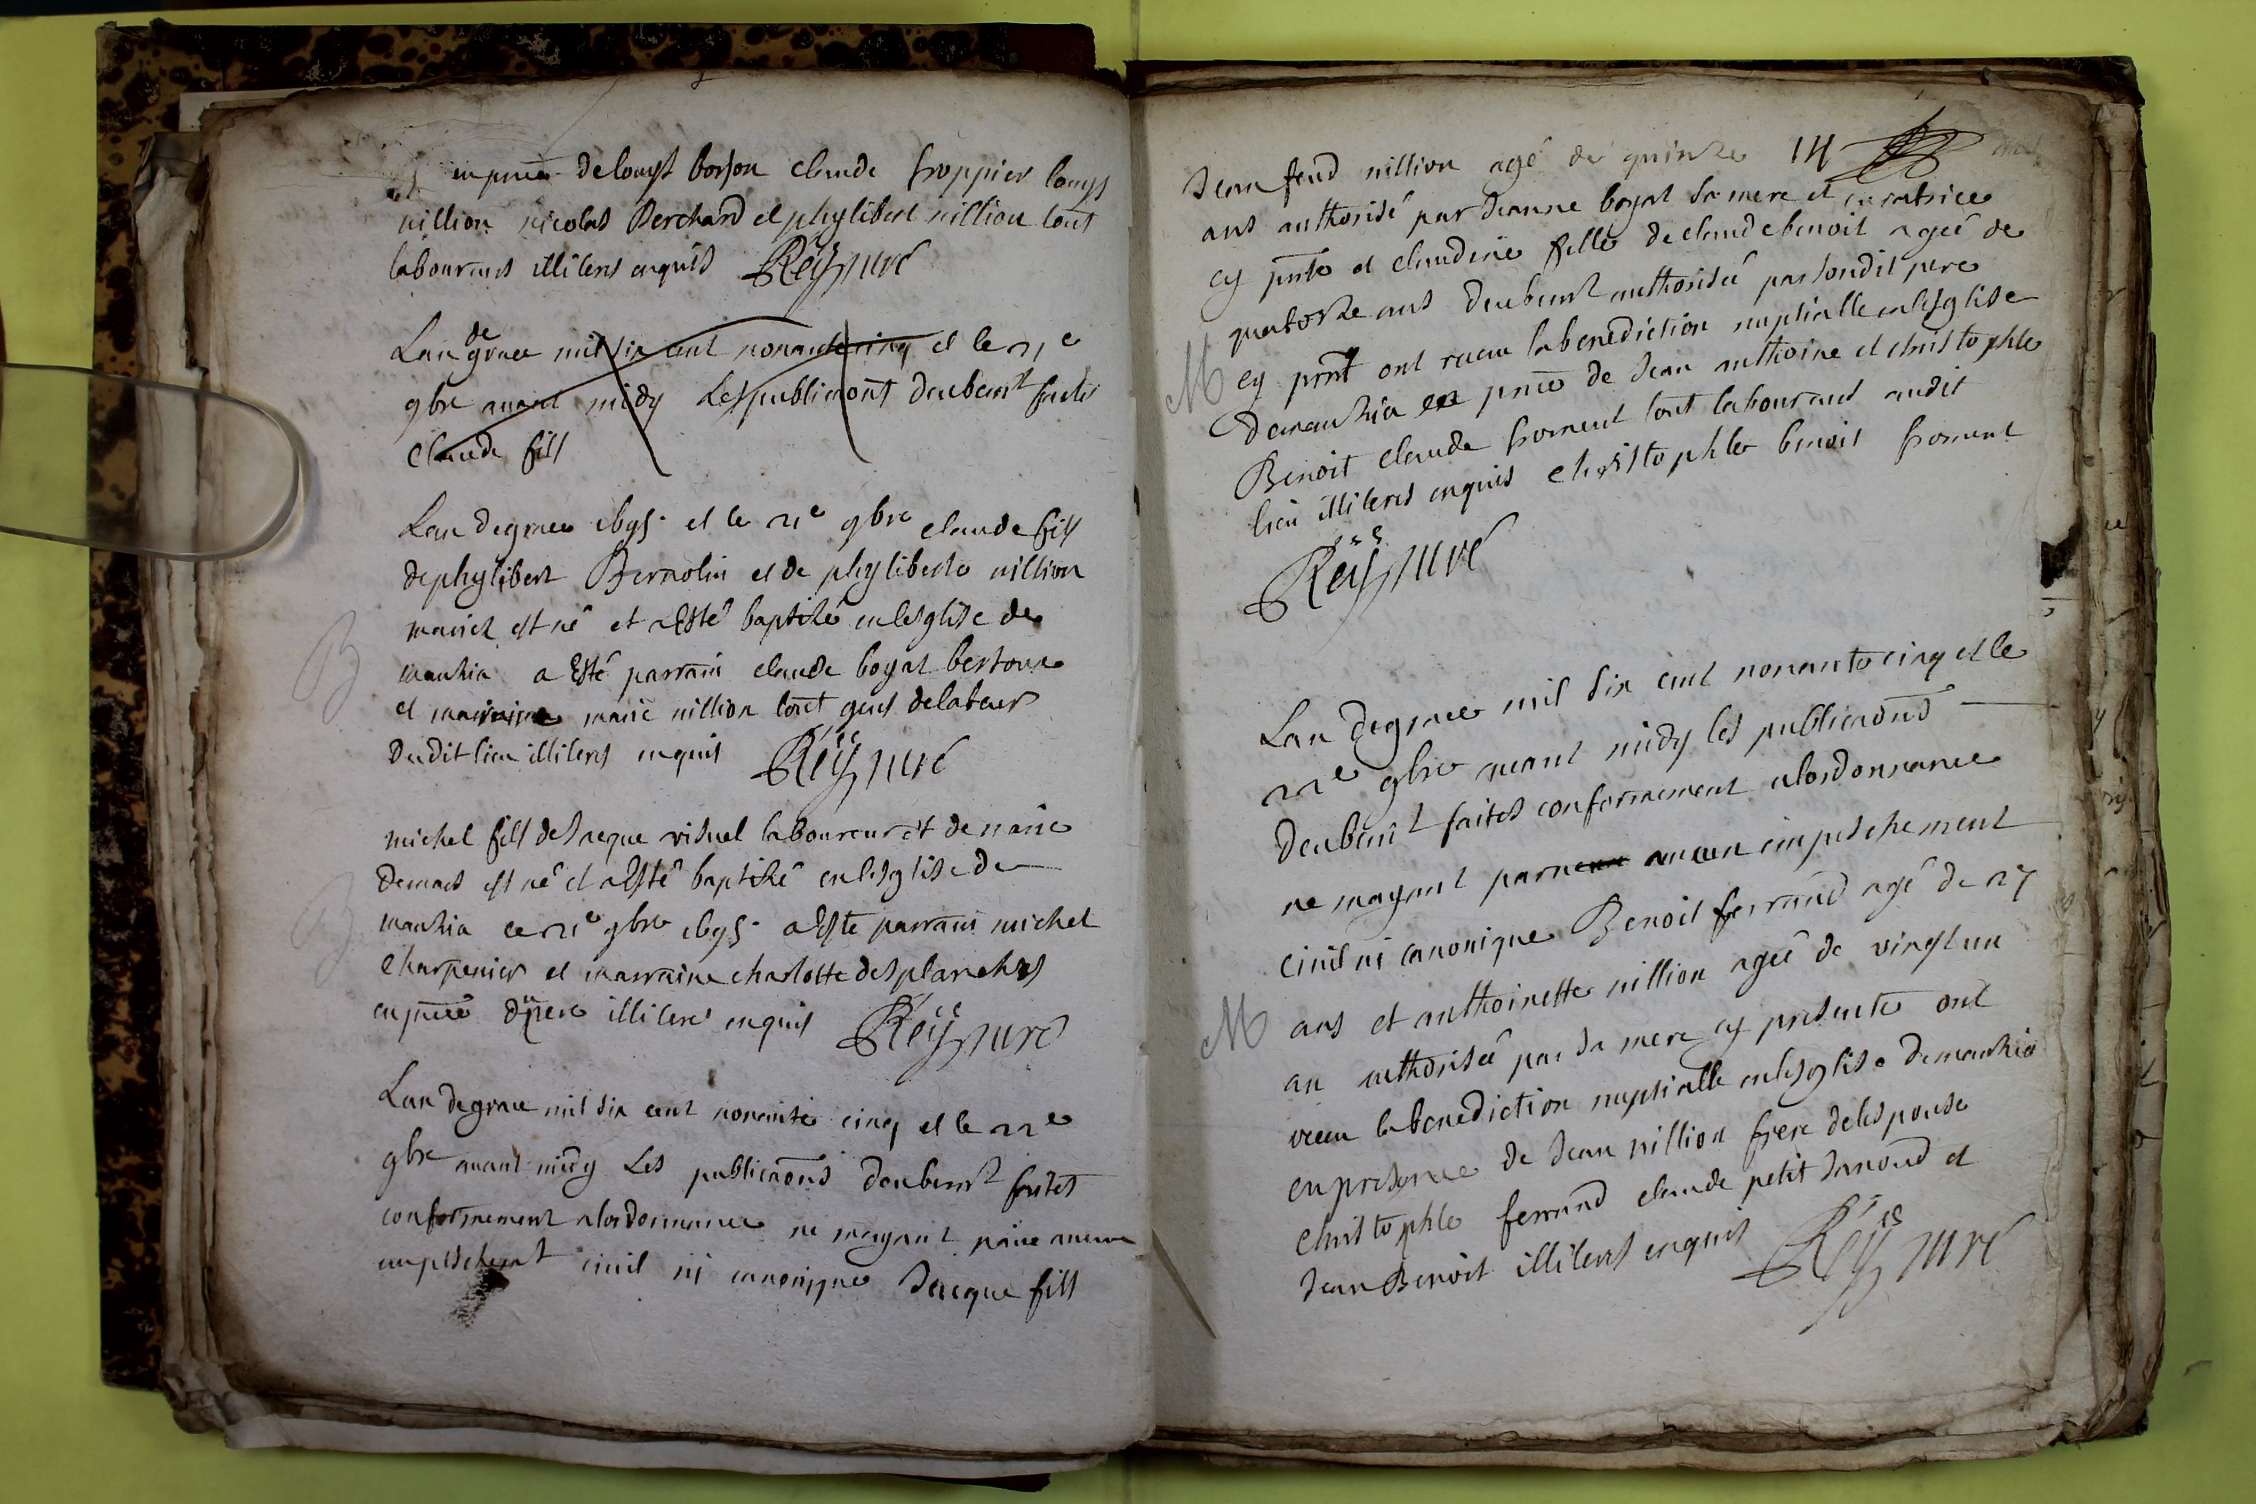 en pnce de louys borjon claude froppier louys
nillion nicolas Perchard et phylibert nillion tout
laboureurs illiteres enquis Reÿ curé
Lan de grace mil six cent nonante cinq et le 21e
9bre auant midy Les publicaons deubemt faites
Claude fils
Lan de grace 1695. et le 21e 9bre claude fils
de phylibert Bernolin et de phyliberte nillion
mariez est né et a Esté baptizé en lesglise de
manzia a Esté parrain claude boyat bertoux
et marraine marie nillion tout gens de labeur
dudit lieu illiteres enquis Reÿ curé
B
michel fils de Jaque visuel laboureur et de marie
demaes est né et a Esté baptizé en lesglise de
manzia ce 21e 9bre 1695. a Este parrain michel
Charpenier et marraine charlotte desplanches
en pnce du pere illiteres enquis Reÿ curé
B
Lan de grace mil six cent nonante cinq et le 22e
9bre auant midy Les publicaons deubemt faites
conformement a lordonnance ne mayant paru aucun
empeschemt ciuil ni canonique Jacque fils
14
Jean feud nillion agé de quinze
ans authorisé par Jeanne boyat sa mere et curatrice
cy pnte et claudine fille de claude benoit agée de
quatorze ans deubemt authorisée par sondit pere
cy pnt ont receu la benediction nuptialle en lesglise
M
de manzia en pnce de Jean anthoine et christophle
Benoit claude froment tout laboureurs audit
lieu illiteres enquis christophle benoit froment
Reÿ curé
Lan de grace mil six cent nonante cinq et le
22e 9bre auant midy les publicaons
deubemt faites conformement a lordonnance
ne mayant paru aucun empeschement
ciuil ni canonique Benoit ferrand agé de 25
ans et anthoinette nillion agée de vingt un
M
an authorisée par sa mere cy presente ont
receu la benediction nuptialle en lesglise de manzia
en presence de Jean nillion frere de lespouse
christophle ferrand claude petit Janoud et
Jean Benoit illiteres enquis Reÿ curé